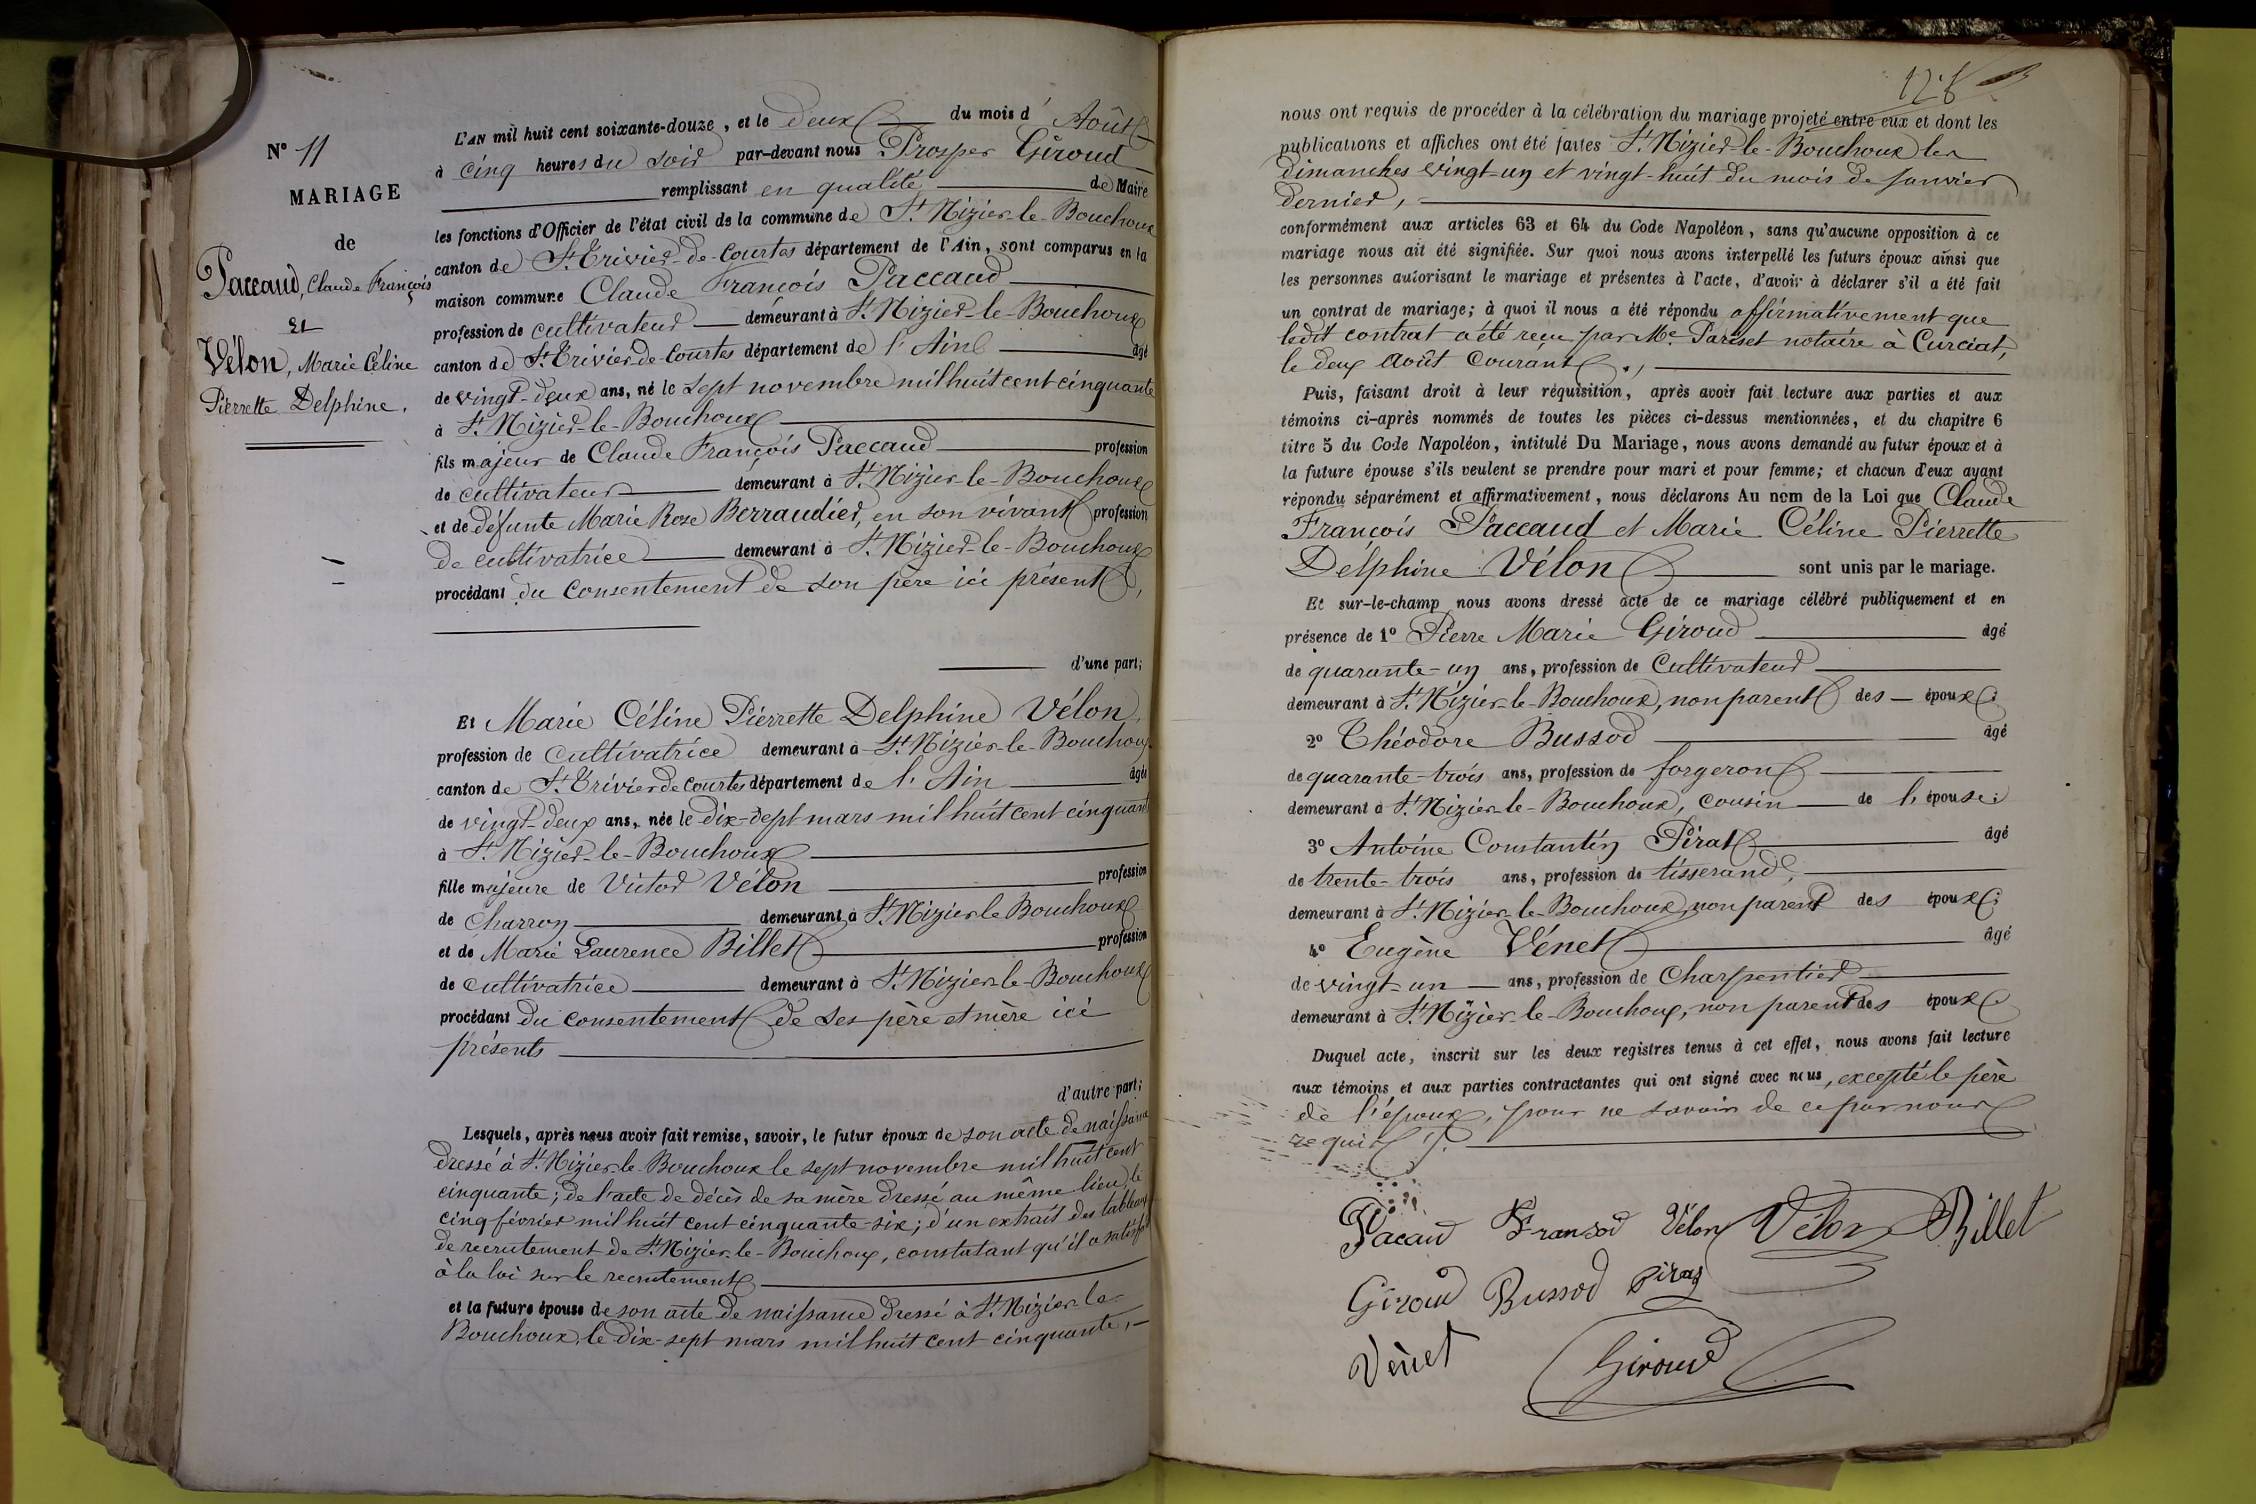 N° 11
MARIAGE
de
Paccaud, Claude François
et
Vélon, Marie Céline
Pierrette Delphine.
L'AN mil huit cent soixante-douze, et le deux du mois d'Août
à cinq heures du soir par-devant nous Prosper Giroud
remplissant en qualité de Maire
les fonctions d'Officier de l'état civil de la commune de St Nizier-le-Bouchoux
canton de St Trivier-de-Courtes département de l'Ain, sont comparus en la
maison commune Claude François Paccaud
profession de cultivateur demeurant à St Nizier-le-Bouchoux
canton de St Trivier de Courtes département de l'Ain âgé
de vingt-deux ans, né le sept novembre mil huit cent cinquante
à St Nizier-le-Bouchoux
fils majeur de Claude François Paccaud profession
de cultivateur demeurant à St Nizier-le-Bouchoux
et de défunte Marie Rose Berraudier, en son vivant profession
de cultivatrice demeurant à St Nizier-le-Bouchoux
procédant du consentement de son père ici présent,
d'une part;
Et Marie Céline Pierrette Delphine Vélon,
profession de cultivatrice demeurant à St Nizier-le-Bouchoux
canton de St Trivier de Courtes département de l'Ain âgée
de vingt-deux ans, née le dix-sept mars mil huit cent cinquante
à St Nizier-le-Bouchoux
fille majeure de Victor Vélon profession
de Charron demeurant à St Nizier le Bouchoux
et de Marie Laurence Billet profession
de cultivatrice demeurant à St Nizier-le-Bouchoux
procédant du consentement de ses père et mère ici
présents
d'autre part;
Lesquels, après nous avoir fait remise, savoir, le futur époux de son acte de naissance
dressé à St Nizier-le-Bouchoux le sept novembre mil huit cent
cinquante; de l'acte de décès de sa mère dressé au même lieu, le
cinq février mil huit cent cinquante-six; d'un extrait des tableaux
de recrutement de St Nizier-le-Bouchoux, constatant qu'il a satisfait
à la loi sur le recrutement
et la future épouse de son acte de naissance dressé à St Nizier-le-
Bouchoux, le dix-sept mars mil huit cent cinquante,
nous ont requis de procéder à la célébration du mariage projeté entre eux et dont les
publications et affiches ont été faites St Nizier-le-Bouchoux les
dimanches vingt-un et vingt-huit du mois de janvier
dernier,
conformément aux articles 63 et 64 du Code Napoléon, sans qu'aucune opposition à ce
mariage nous ait été signifiée. Sur quoi nous avons interpellé les futurs époux ainsi que
les personnes autorisant le mariage et présentes à l'acte, d'avoir à déclarer s'il a été fait
un contrat de mariage; à quoi il nous a été répondu affirmativement que
ledit contrat a été reçu par Me Pariset notaire à Curciat,
le deux août courant.,
Puis, faisant droit à leur réquisition, après avoir fait lecture aux parties et aux
témoins ci-après nommés de toutes les pièces ci-dessus mentionnées, et du chapitre 6
titre 5 du Code Napoléon, intitulé Du Mariage, nous avons demandé au futur époux et à
la future épouse s'ils veulent se prendre pour mari et pour femme; et chacun d'eux ayant
répondu séparément et affirmativement, nous déclarons Au nom de la Loi que Claude
François Paccaud et Marie Céline Pierrette
Delphine Vélon sont unis par le mariage.
Et sur-le-champ nous avons dressé acte de ce mariage célébré publiquement et en
présence de 1° Pierre Marie Giroud âgé
de quarante-un ans, profession de Cultivateur
demeurant à St Nizier-le-Bouchoux, non parent des époux;
2° Théodore Bussod âgé
de quarante-trois ans, profession de forgeron
demeurant à St Nizier-le-Bouchoux, cousin de l'épouse;
3° Antoine Constantin Pirat âgé
de trente-trois ans, profession de tisserand,
demeurant à St Nizier-le-Bouchoux, non parent des époux;
4° Eugène Vénet âgé
de vingt-un ans, profession de Charpentier
demeurant à St Nizier-le-Bouchoux, non parent des époux
Duquel acte, inscrit sur les deux registres tenus à cet effet, nous avons fait lecture
aux témoins et aux parties contractantes qui ont signé avec nous, excepté le père
de l'époux, pour ne savoir de ce par nous
requis.
Pacaud Fransod Vélon Vélon Billet
Giroud Bussod Pirat
Vènet Giroud